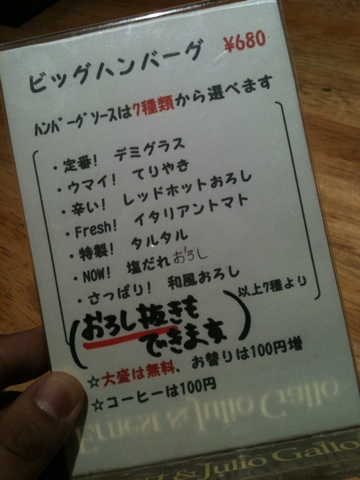 ビッグハンバーグ ¥680
ハンバーグソースは7種類から選べます
・定番! デミグラス
・ウマイ! てりやき
・辛い! レッドホットおろし
・Fresh! イタリアントマト
・特製! タルタル
・NOW! 塩だれおろし
・さっぱり! 和風おろし
以上7種より
(おろし抜きも
できます)
☆大盛は無料、お替りは100円増
☆コーヒーは100円
Ernest & Julio Gallo
& Julio Gallo